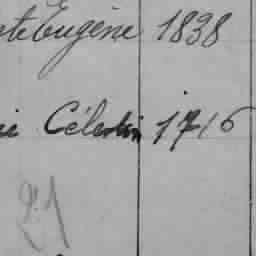 Eugène 1838
Célestin 1716
21